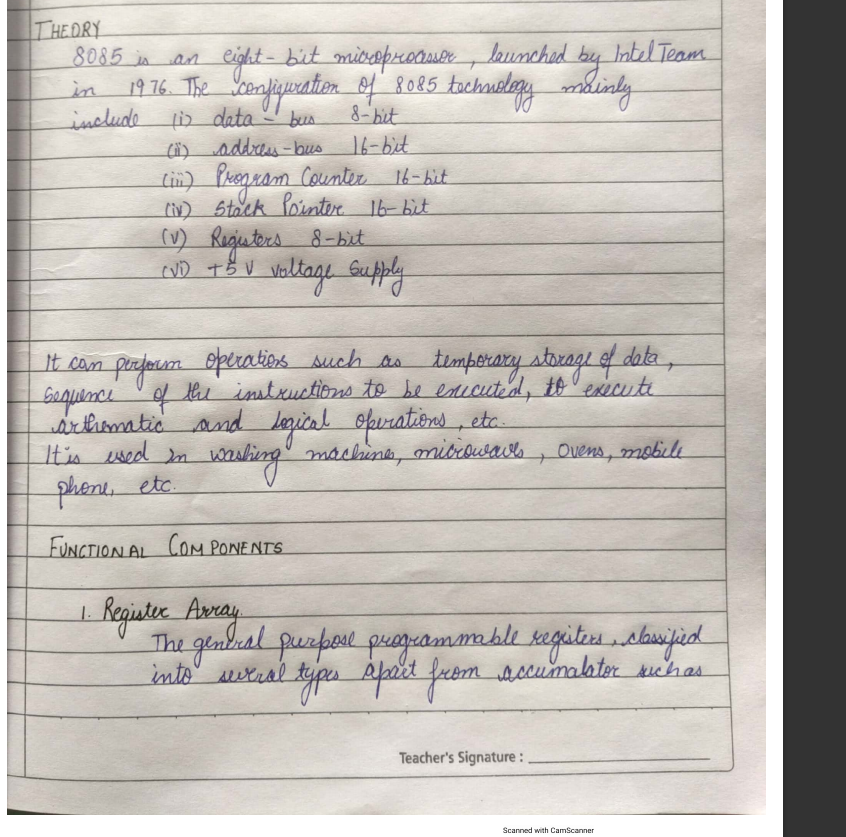 THEORY
8085 is an eight-bit microprocessor, launched by Intel Team
in 1976. The configuration of 8085 technology mainly
include (i) data-bus 8-bit
(ii) address-bus 16-bit
(iii) Program Counter 16-bit
(iv) Stack Pointer 16-bit
(v) Registers 8-bit
(vi) +5 V voltage Supply
It can perform operations such as temporary storage of data,
sequence of the instructions to be executed, to execute
arthematic and logical operations, etc.
It is used in washing machines, microwaves, ovens, mobile
phone, etc.
FUNCTIONAL COMPONENTS
1. Register Array.
The general purpose programmable registers, classified
into several types apart from accumalator such as
Teacher's Signature :
Scanned with CamScanner